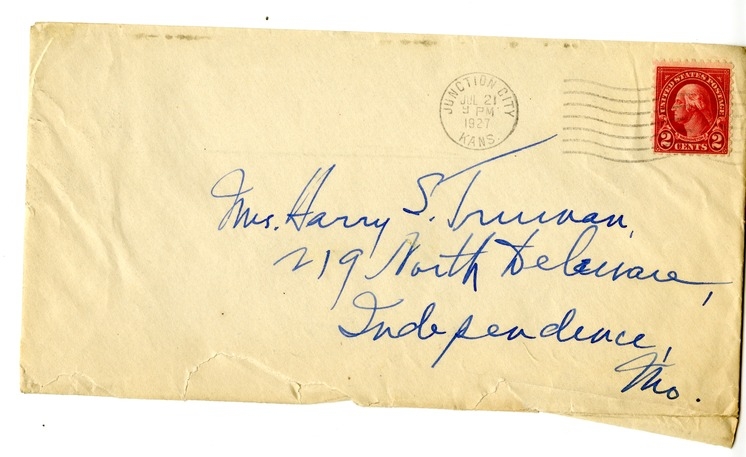 JUNCTION CITY
JUL 21
9 PM
1927
KANS.
UNITED STATES POSTAGE
2 CENTS 2
Mrs. Harry S. Truman,
219 North Delaware,
Independence,
Mo.